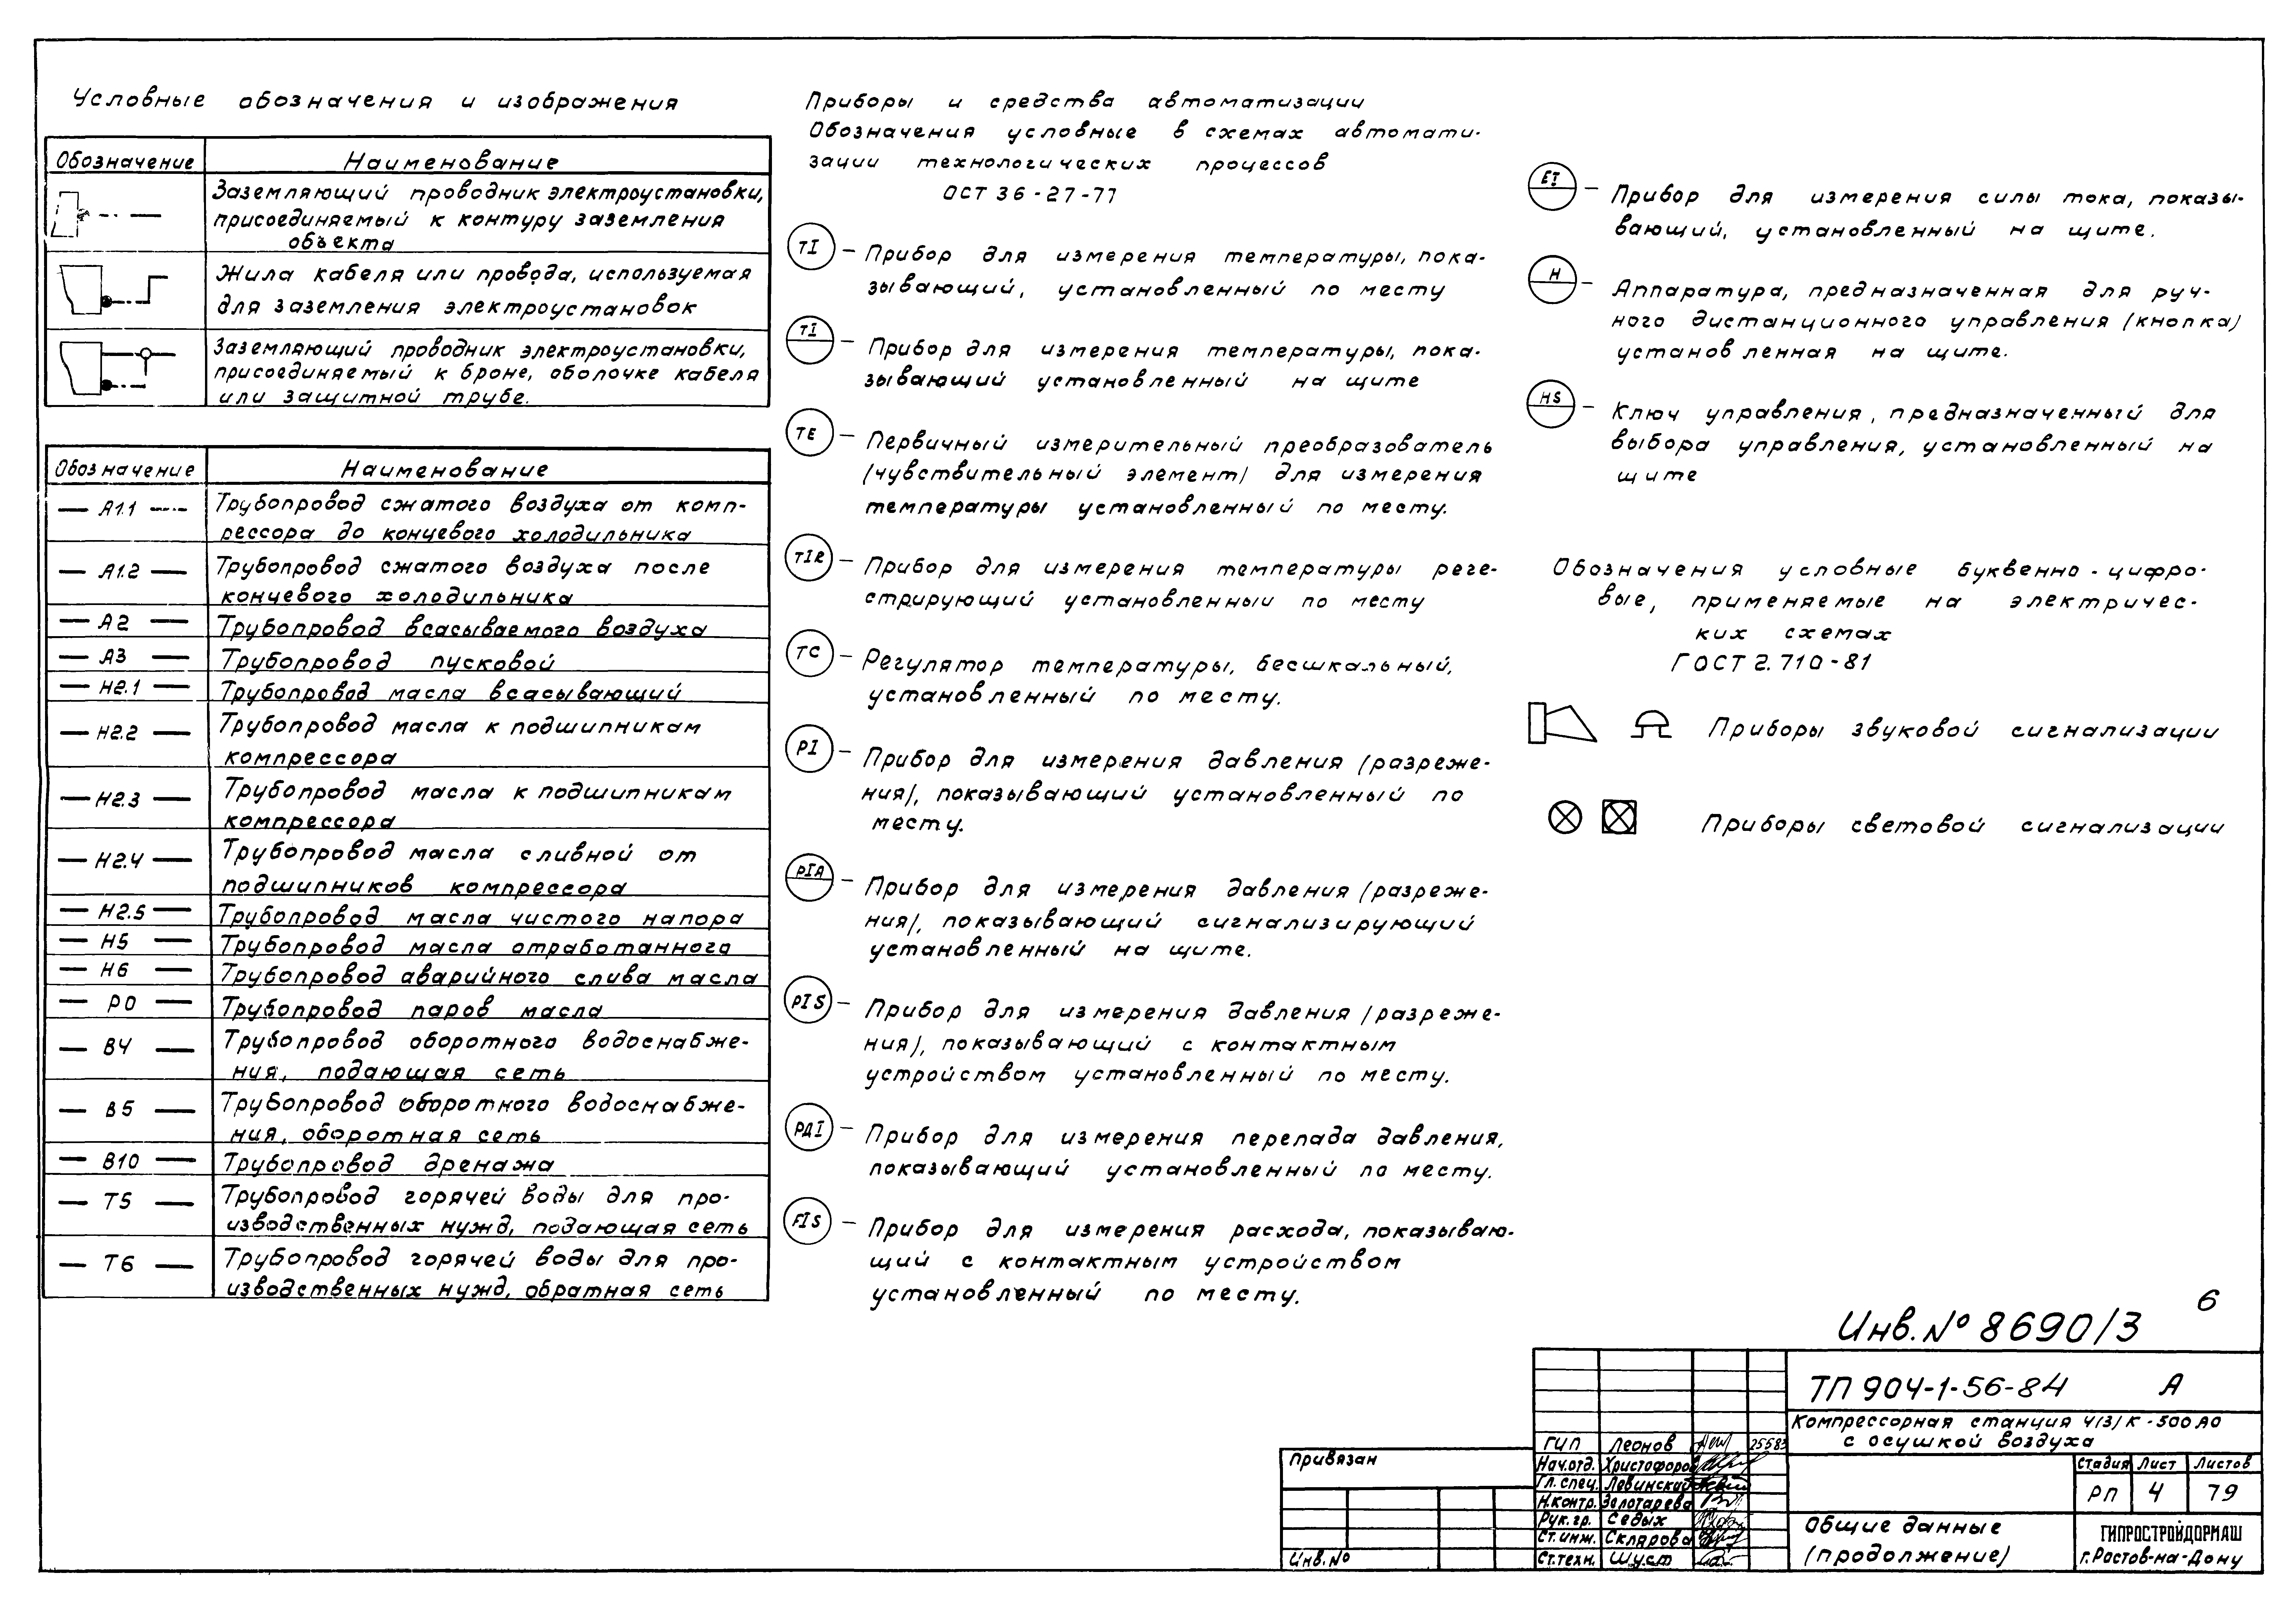 Условные обозначения и изображения
Обозначение Наименование
Заземляющий проводник электроустановки,
присоединяемый к контуру заземления
объекта
Жила кабеля или провода, используемая
для заземления электроустановок
Заземляющий проводник электроустановки,
присоединяемый к броне, оболочке кабеля
или защитной трубе.
Обозначение Наименование
А1.1 Трубопровод сжатого воздуха от комп-
рессора до концевого холодильника
А1.2 Трубопровод сжатого воздуха после
концевого холодильника
А2 Трубопровод всасываемого воздуха
А3 Трубопровод пусковой
Н2.1 Трубопровод масла всасывающий
Н2.2 Трубопровод масла к подшипникам
компрессора
Н2.3 Трубопровод масла к подшипникам
компрессора
Н2.4 Трубопровод масла сливной от
подшипников компрессора
Н2.5 Трубопровод масла чистого напора
Н5 Трубопровод масла отработанного
Н6 Трубопровод аварийного слива масла
Р0 Трубопровод паров масла
В4 Трубопровод оборотного водоснабже-
ния, подающая сеть
В5 Трубопровод оборотного водоснабже-
ния, оборотная сеть
В10 Трубопровод дренажа
Т5 Трубопровод горячей воды для про-
изводственных нужд, подающая сеть
Т6 Трубопровод горячей воды для про-
изводственных нужд, обратная сеть
Приборы и средства автоматизации
Обозначения условные в схемах автомати-
зации технологических процессов
ОСТ 36-27-77
TI – Прибор для измерения температуры, пока-
зывающий, установленный по месту
TI – Прибор для измерения температуры, пока-
зывающий установленный на щите
TE – Первичный измерительный преобразователь
(чувствительный элемент) для измерения
температуры установленный по месту.
TIR – Прибор для измерения температуры реге-
стрирующий установленный по месту
TC – Регулятор температуры, бесшкальный,
установленный по месту.
PI – Прибор для измерения давления (разреже-
ния), показывающий установленный по
месту.
PIA – Прибор для измерения давления (разреже-
ния), показывающий сигнализирующий
установленный на щите.
PIS – Прибор для измерения давления (разреже-
ния), показывающий с контактным
устройством установленный по месту.
РДI – Прибор для измерения перепада давления,
показывающий установленный по месту.
FIS – Прибор для измерения расхода, показываю-
щий с контактным устройством
установленный по месту.
EI – Прибор для измерения силы тока, показы-
вающий, установленный на щите.
H – Аппаратура, предназначенная для руч-
ного дистанционного управления (кнопка)
установленная на щите.
HS – Ключ управления, предназначенный для
выбора управления, установленный на
щите
Обозначения условные буквенно-цифро-
вые, применяемые на электричес-
ких схемах
ГОСТ 2.710-81
Приборы звуковой сигнализации
Приборы световой сигнализации
6
Инв. № 8690/3
ТП 904-1-56-84 А
Компрессорная станция 4(3)К-500А0
с осушкой воздуха
Привязан
Инв. №
ГИП Леонов 25583
Нач.отд. Христофоров
Гл.спец. Левинский
Н.контр. Золотарева
Рук.гр. Седых
Ст.инж. Склярова
Ст.техн. Шуст
Стадия Лист Листов
РП 4 79
Общие данные
(продолжение)
ГИПРОСТРОЙДОРМАШ
г.Ростов-на-Дону